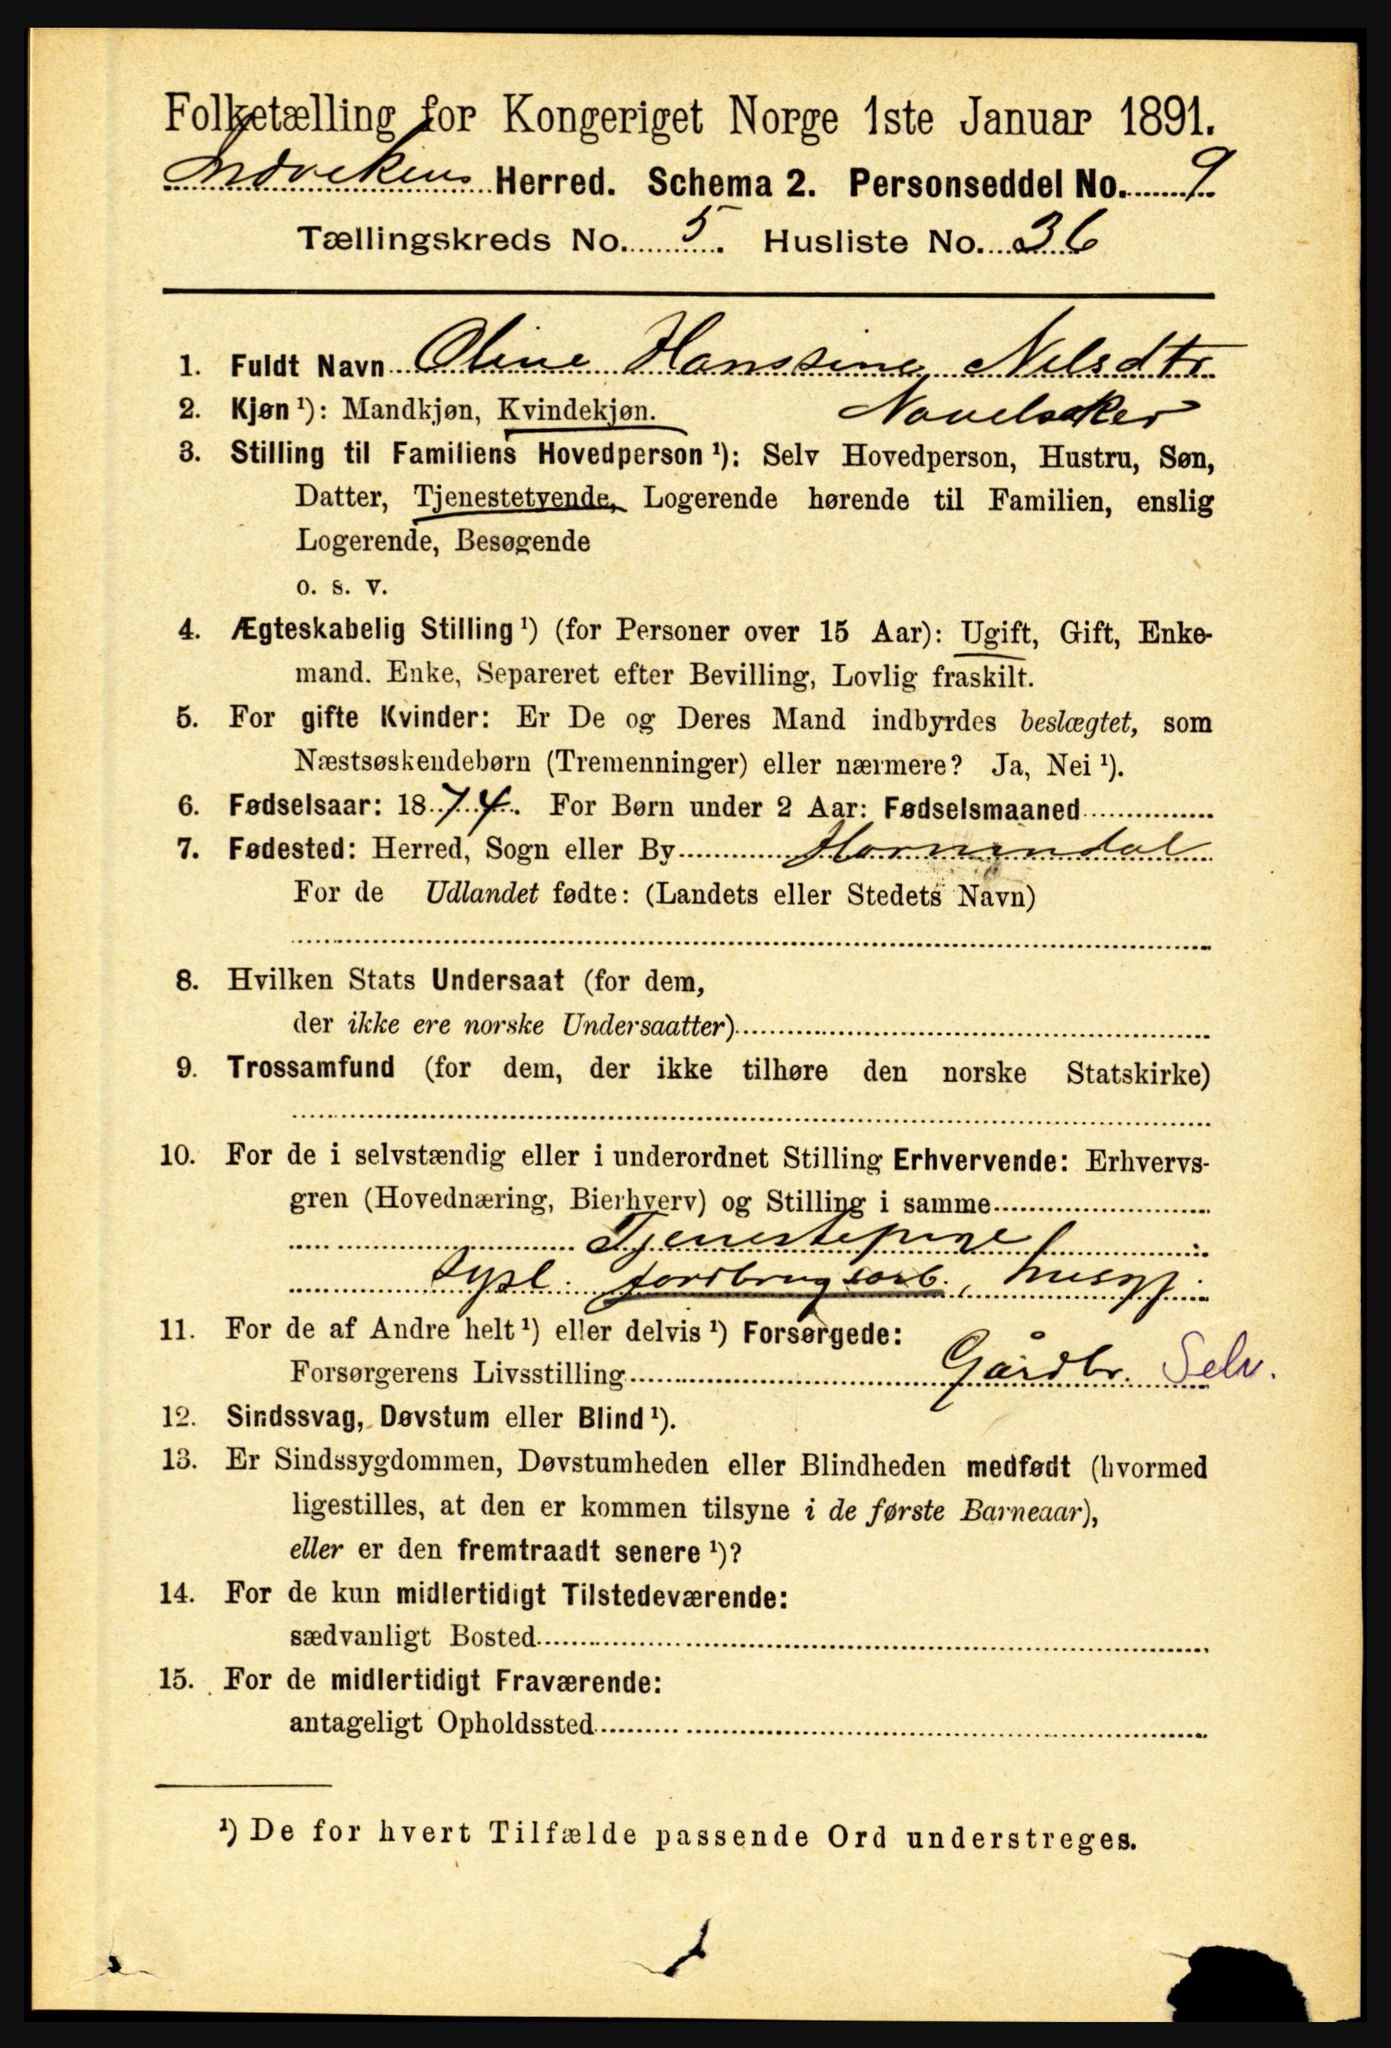 Folketælling for Kongeriget Norge 1ste Januar 1891.
Indvikens Herred. Schema 2. Personseddel No. 9
Tællingskreds No. 5. Husliste No. 36
1. Fuldt Navn Oline Hanssine Nilsdtr
2. Kjøn ¹): Mandkjøn, Kvindekjøn.
3. Stilling til Familiens Hovedperson ¹): Selv Hovedperson, Hustru, Søn,
Datter, Tjenestetyende, Logerende hørende til Familien, enslig
Logerende, Besøgende
o. s. v.
4. Ægteskabelig Stilling ¹) (for Personer over 15 Aar): Ugift, Gift, Enke-
mand. Enke, Separeret efter Bevilling, Lovlig fraskilt.
5. For gifte Kvinder: Er De og Deres Mand indbyrdes beslægtet, som
Næstsøskendebørn (Tremenninger) eller nærmere? Ja, Nei ¹).
6. Fødselsaar: 1874. For Børn under 2 Aar: Fødselsmaaned
7. Fødested: Herred, Sogn eller By Hornindal
For de Udlandet fødte: (Landets eller Stedets Navn)
8. Hvilken Stats Undersaat (for dem,
der ikke ere norske Undersaatter)
9. Trossamfund (for dem, der ikke tilhøre den norske Statskirke)
10. For de i selvstændig eller i underordnet Stilling Erhvervende: Erhvervs-
gren (Hovednæring, Bierhverv) og Stilling i samme
Tjenestepige
sysl. jordbrugsarb.,
11. For de af Andre helt ¹) eller delvis ¹) Forsørgede:
Forsørgerens Livsstilling Gårdbr. Selv.
12. Sindssvag, Døvstum eller Blind ¹).
13. Er Sindssygdommen, Døvstumheden eller Blindheden medfødt (hvormed
ligestilles, at den er kommen tilsyne i de første Barneaar),
eller er den fremtraadt senere ¹)?
14. For de kun midlertidigt Tilstedeværende:
sædvanligt Bosted
15. For de midlertidigt Fraværende:
antageligt Opholdssted
¹) De for hvert Tilfælde passende Ord understreges.